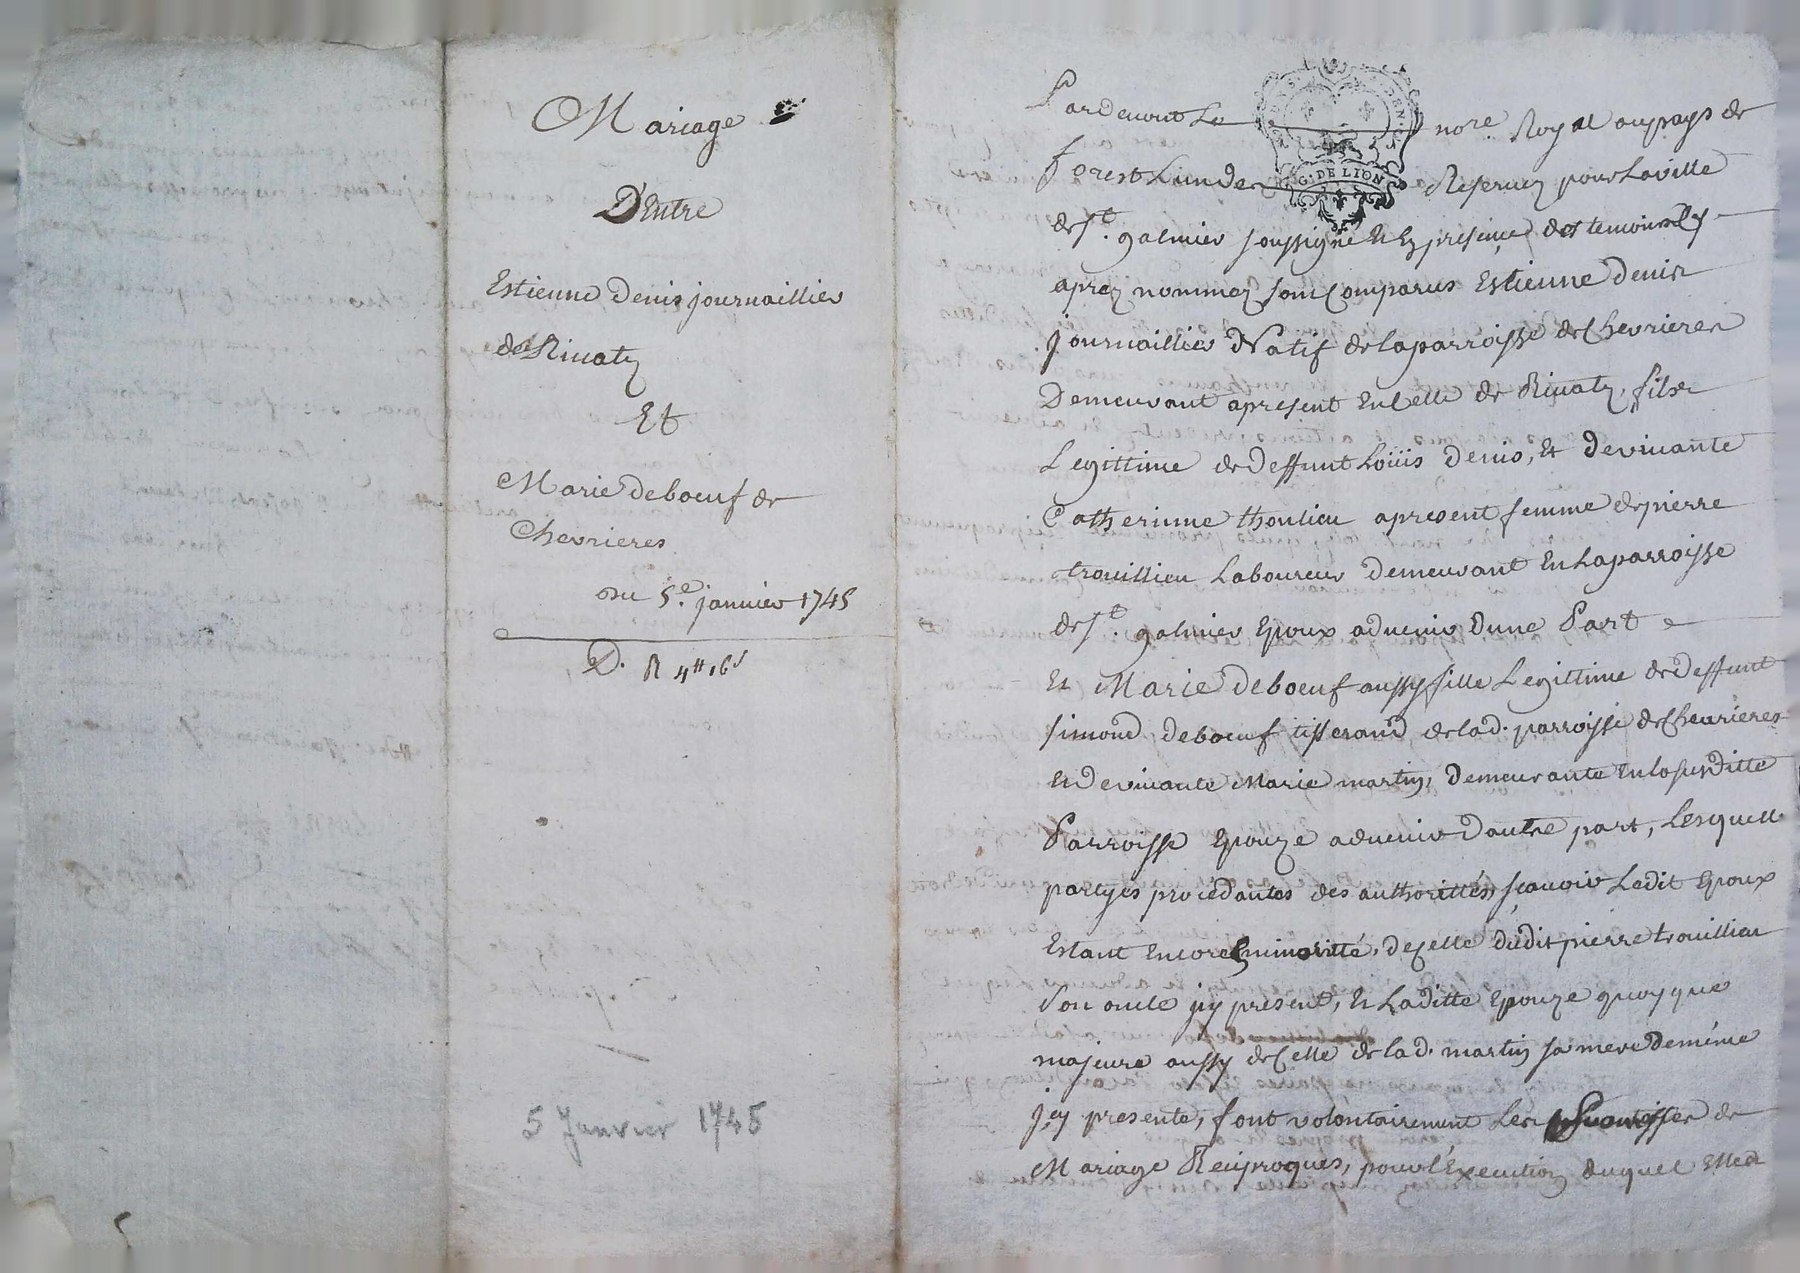 Mariage
D'Entre
Estienne Denis journaillier
de Rivatz
Et
Marie deboeuf de
Chevrieres
du 5e. janvier 1745
R 4# 16s
5 Janvier 1745
Pardevant Le nore. Royal au pays de
forest Lun des Reservez pour Laville
de St. galmier soussigné Et En presence des temoins Cy
aprez nommez sont Comparus Estienne denis
journaillier Natif de laparroisse de Chevrieres
Demeurant apresent En Celle de Rivatz, fils
Legittime de deffunt Loüis denis, Et devivante
Catherinne thoulieu apresent femme de pierre
trouillieu Laboureur demeurant En Laparroisse
de St. galmier Epoux advenir dune Part
Et Marie deboeuf aussy fille Legittime de deffunt
simond deboeuf tisserand de lad. parroisse de Chevrieres
Et devivante Marie martin, demeurante En la susditte
Parroisse Epouze advenir dautre part, Lesquell
partyes procedantes des authorittés sçavoir Ledit Epoux
Estant Encore En minoritté, de Celle dudit pierre trouillieu
Son oncle jcy present, Et Laditte Epouze quoyque
majeure aussy de Celle de lad. martin sa mere demême
jcy presente, font volontairement Les promesses de
Mariage Reciproques, pour l'Execution duquel Elles
G. DE LION